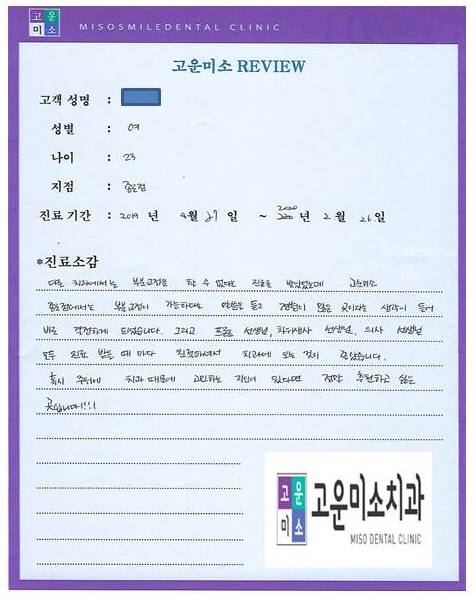 고운
미소
MISOSMILEDENTAL CLINIC
고운미소 REVIEW
고객 성명 :
성별 : 여
나이 : 23
지점 : 종로점
진료 기간 : 2019 년 9 월 27 일 ~ 2020 년 2 월 26 일
*진료소감
다른 치과에서는 부분교정을 할 수 없다는 진료를 받았었는데 고운미소
종로점에서는 부분교정이 가능하다는 말씀을 듣고 경험이 많은 곳이라는 생각이 들어
바로 결정하게 되었습니다. 그리고 선생님, 치위생사 선생님, 의사 선생님
모두 진료 받을 때 마다 친절하셔서 치과에 오는 것이 좋았습니다.
혹시 주위에 치과 때문에 고민하는 지인이 있다면 정말 추천하고 싶은
곳입니다!!!
고운
미소
고운미소치과
MISO DENTAL CLINIC